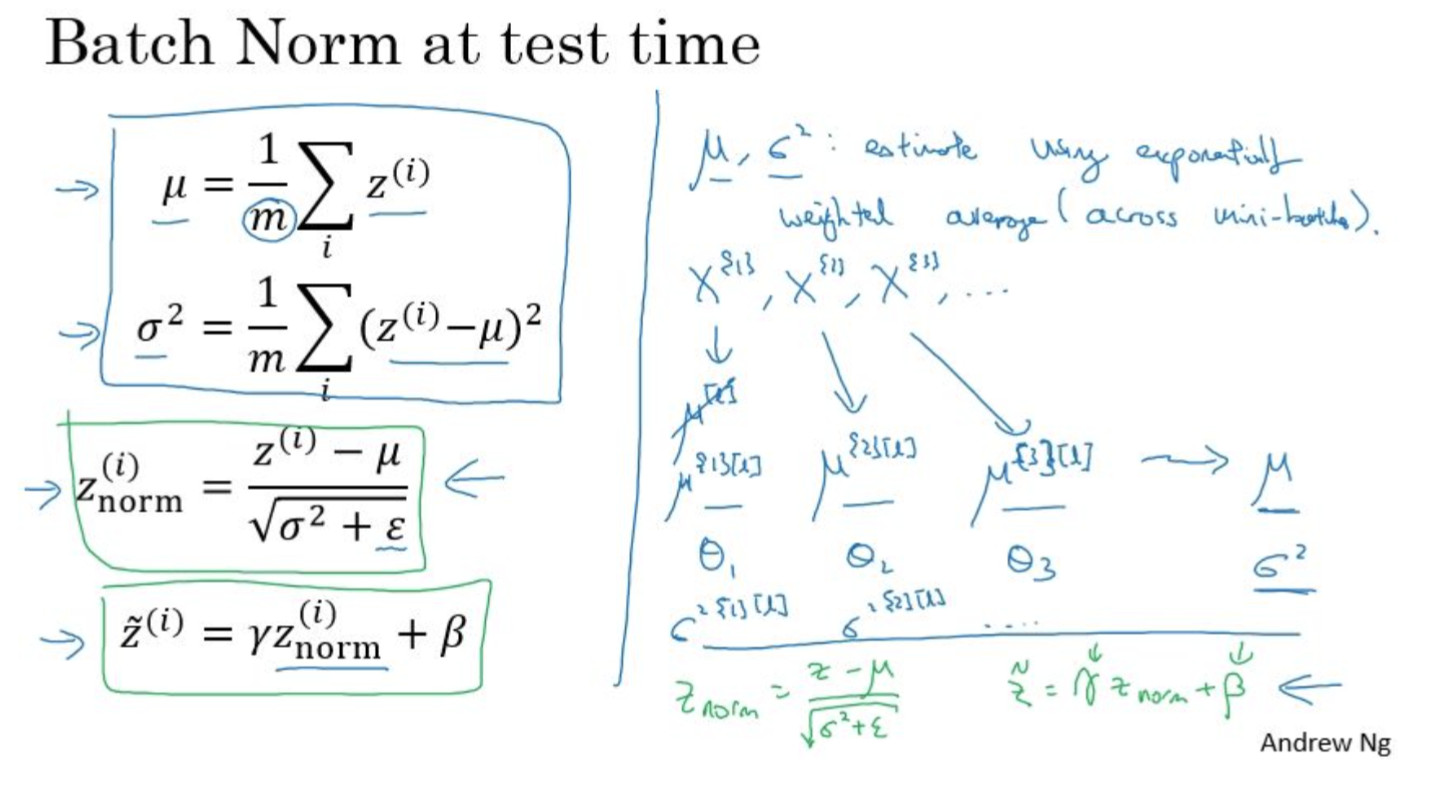 Batch Norm at test time
μ = 1/m ∑_i z^(i)
σ² = 1/m ∑_i (z^(i) − μ)²
z_norm^(i) = (z^(i) − μ) / √(σ² + ε)
z̃^(i) = γz_norm^(i) + β
μ, σ² : estimate using exponentially
weighted average (across mini-batches).
X^{1}, X^{2}, X^{3}, ...
μ^[l]
μ^{1}[l] μ^{2}[l] μ^{3}[l] → μ
θ₁ θ₂ θ₃ σ²
σ²^{1}[l] σ²^{2}[l] ....
z_norm = (z − μ) / √(σ² + ε) z̃ = γ z_norm + β
Andrew Ng